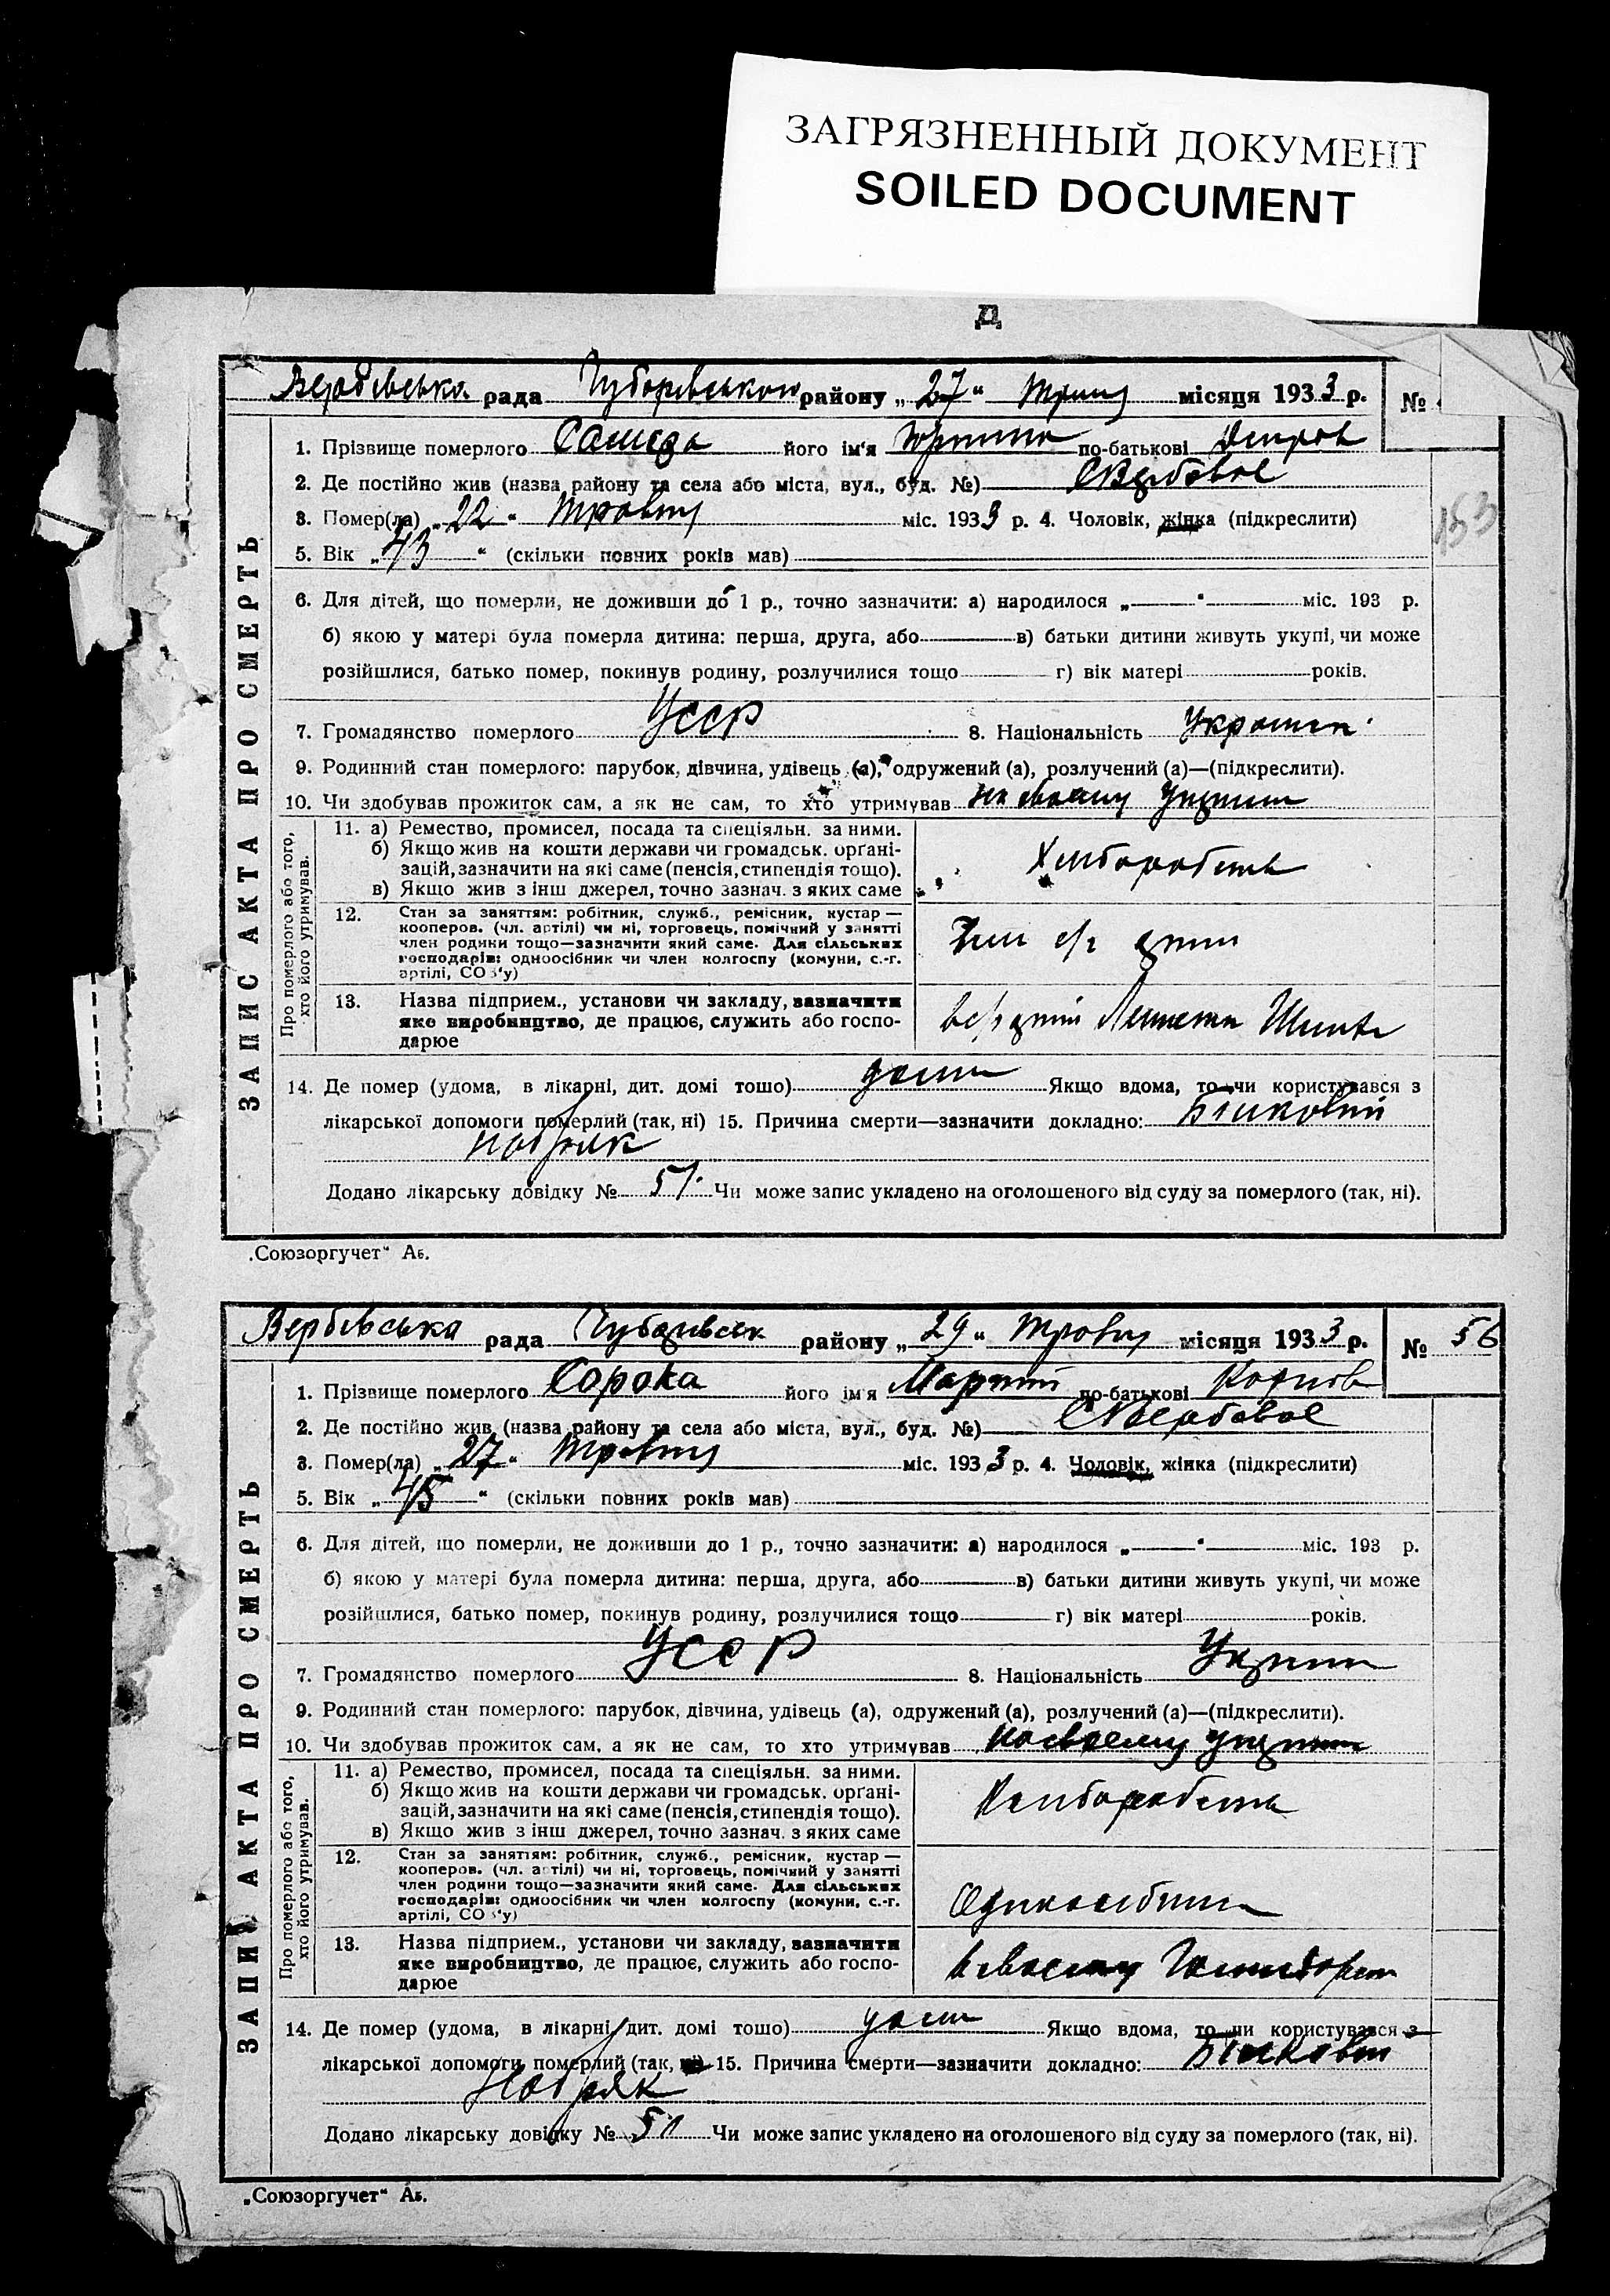 ЗАГРЯЗНЕННЫЙ ДОКУМЕНТ
SOILED DOCUMENT
Д
Вербівська рада району „27“ місяця 1933 р. №
ЗАПИС АКТА ПРО СМЕРТЬ
153
1. Прізвище померлого його ім'я по-батькові
2. Де постійно жив (назва району та села або міста, вул., буд. №) с Вербове
3. Помер(ла) „22“ Травня міс. 1933 р. 4. Чоловік, жінка (підкреслити)
5. Вік „43“ (скільки повних років мав)
6. Для дітей, що померли, не доживши до 1 р., точно зазначити: а) народилося „—“ міс. 193 р.
б) якою у матері була померла дитина: перша, друга, або в) батьки дитини живуть укупі, чи може
розійшлися, батько помер, покинув родину, розлучилися тощо г) вік матері років.
7. Громадянство померлого УССР 8. Національність
9. Родинний стан померлого: парубок, дівчина, удівець (а), одружений (а), розлучений (а)—(підкреслити).
10. Чи здобував прожиток сам, а як не сам, то хто утримував на своему
Про померлого або того, хто його утримував.
11. а) Ремество, промисел, посада та спеціяльн. за ними.
б) Якщо жив на кошти держави чи громадськ. орґані-
зацій, зазначити на які саме (пенсія, стипендія тощо).
в) Якщо жив з інш джерел, точно зазнач. з яких саме
Хліборобство
12. Стан за заняттям: робітник, служб., ремісник, кустар —
кооперов. (чл. артілі) чи ні, торговець, помічний у занятті
член родини тощо—зазначити який саме. Для сільських
господарів: одноосібник чи член колгоспу (комуни, с.-г.
артілі, СОЗ'у)
13. Назва підприєм., установи чи закладу, зазначити
яке виробництво, де працює, служить або госпо-
дарює
14. Де помер (удома, в лікарні, дит. домі тошо) дома Якщо вдома, то чи користувався з
лікарської допомоги померлий (так, ні) 15. Причина смерти—зазначити докладно: Білковий
набряк
Додано лікарську довідку № 51 Чи може запис укладено на оголошеного від суду за померлого (так, ні).
„Союзоргучет“ Аб.
Вербівська рада району „29“ Травня місяця 1933 р. № 56
ЗАПИС АКТА ПРО СМЕРТЬ
1. Прізвище померлого Сорока його ім'я Мартин по-батькові Корнів
2. Де постійно жив (назва району та села або міста, вул., буд. №) с Вербовое
3. Помер(ла) „27“ Травня міс. 1933 р. 4. Чоловік, жінка (підкреслити)
5. Вік „45“ (скільки повних років мав)
6. Для дітей, що померли, не доживши до 1 р., точно зазначити: а) народилося „—“ міс. 193 р.
б) якою у матері була померла дитина: перша, друга, або в) батьки дитини живуть укупі, чи може
розійшлися, батько помер, покинув родину, розлучилися тощо г) вік матері років.
7. Громадянство померлого УССР 8. Національність
9. Родинний стан померлого: парубок, дівчина, удівець (а), одружений (а), розлучений (а)—(підкреслити).
10. Чи здобував прожиток сам, а як не сам, то хто утримував на своему
Про померлого або того, хто його утримував.
11. а) Ремество, промисел, посада та спеціяльн. за ними.
б) Якщо жив на кошти держави чи громадськ. орґані-
зацій, зазначити на які саме (пенсія, стипендія тощо).
в) Якщо жив з інш джерел, точно зазнач. з яких саме
Хліборобство
12. Стан за заняттям: робітник, служб., ремісник, кустар —
кооперов. (чл. артілі) чи ні, торговець, помічний у занятті
член родини тощо—зазначити який саме. Для сільських
господарів: одноосібник чи член колгоспу (комуни, с.-г.
артілі, СОЗ'у)
Одноосібник
13. Назва підприєм., установи чи закладу, зазначити
яке виробництво, де працює, служить або госпо-
дарює
14. Де помер (удома, в лікарні, дит. домі тошо) дома Якщо вдома, то чи користувався з
лікарської допомоги померлий (так, ні) 15. Причина смерти—зазначити докладно: Білковий
Набряк
Додано лікарську довідку № 51 Чи може запис укладено на оголошеного від суду за померлого (так, ні).
„Союзоргучет“ Аб.